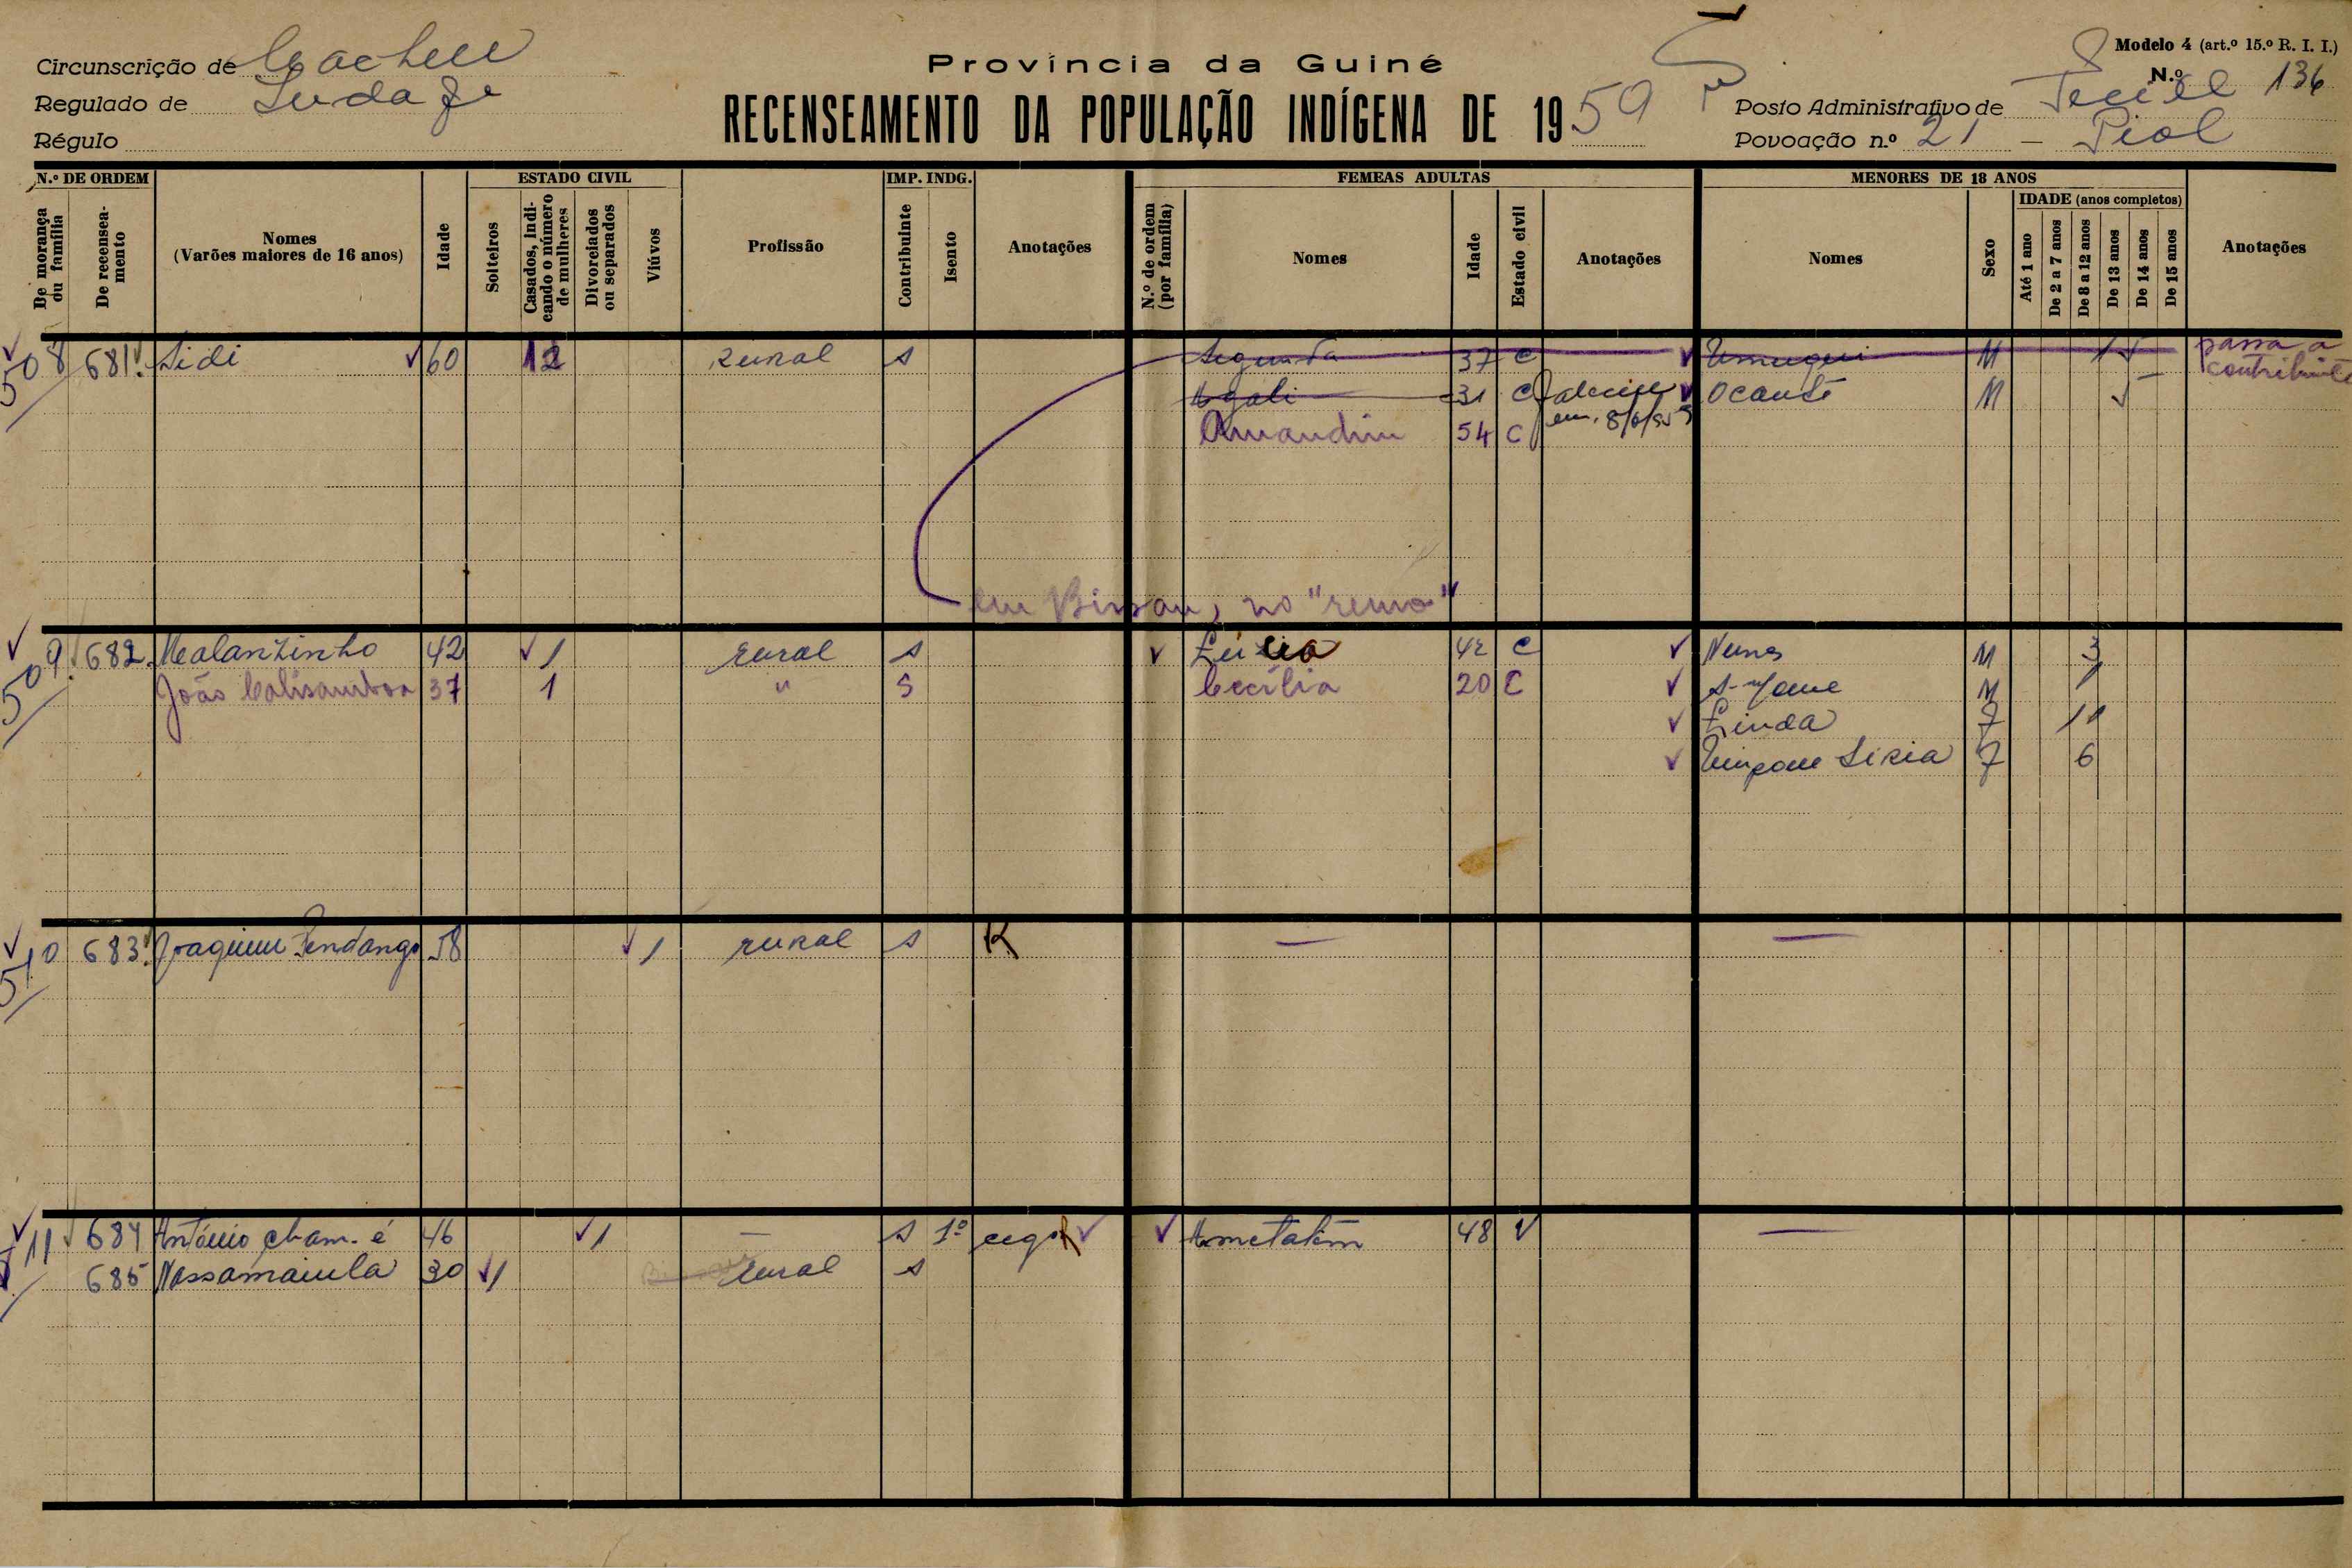 Circunscrição de Cacheu
Regulado de
Régulo
Província da Guiné
RECENSEAMENTO DA POPULAÇÃO INDÍGENA DE 1959
Modelo 4 (art.º 15.º R. I. I.)
N.º 136
Posto Administrativo de
Povoação n.º 21 -
N.º DE ORDEM
De morança ou família
De recenseamento
Nomes
(Varões maiores de 16 anos)
Idade
ESTADO CIVIL
Solteiros
Casados, indicando o número de mulheres
Divorciados ou separados
Viúvos
Profissão
IMP. INDG.
Contribuinte
Isento
Anotações
N.º de ordem (por família)
FEMEAS ADULTAS
Nomes
Idade
Estado civil
Anotações
MENORES DE 18 ANOS
Nomes
Sexo
IDADE (anos completos)
Até 1 ano
De 2 a 7 anos
De 8 a 12 anos
De 13 anos
De 14 anos
De 15 anos
Anotações
508 681 Sidi 60 12 rural s Segunda 37 C M passa a
contribuinte
31 C Faleceu Ocante M
54 C em
em Bissau, no "remo"
509 682 Malanzinho 42 1 rural s Lúcia 42 C Nunes M 3
João 37 1 " S Cecília 20 C M 1
Linda F 11
F 6
510 683 Joaquim 58 1 rural s R — —
511 684 António cham. é 46 1 — s 1º cego R 48 V —
685 30 1 rural s